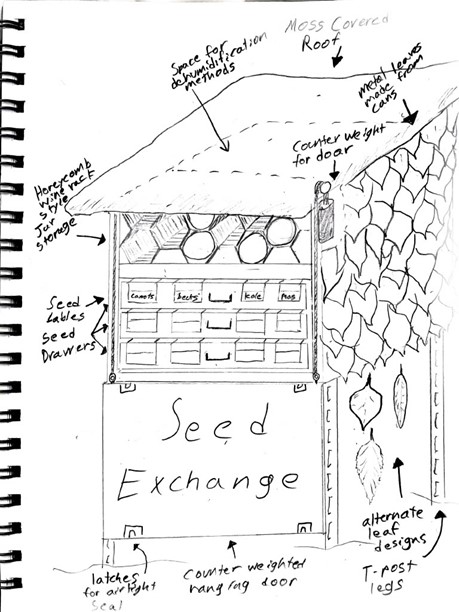 Moss Covered
Roof
Space for
dehumidification
methods
Metal leaves
made from
cans
Counter weight
for door
Honeycomb
wine rack
style
Jar
storage
Carrots
Beets
Kale
Peas
Seed
Lables
Seed
Drawers
Seed
Exchange
alternate
leaf
designs
T-post
legs
latches
for airtight
seal
Counter weighted
hanging door